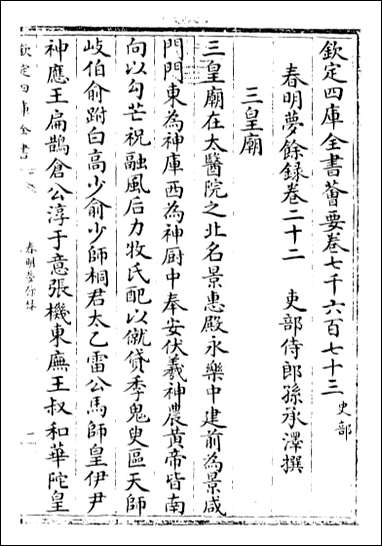 欽定四庫全書薈要卷七千六百七十三 史部
春明夢餘録卷二十二 吏部侍郎孫承澤撰
三皇廟
三皇廟在太醫院之北名景惠殿永樂中建前為景咸
門門東為神庫西為神厨中奉安伏羲神農黄帝皆南
向以勾芒祝融風后力牧氏配以僦貸季鬼臾區天師
岐伯俞跗白高少俞少師桐君太乙雷公馬師皇伊尹
神應王扁鵲倉公淳于意張機東廡王叔和華陀皇
欽定四庫全書
春明夢餘録
一